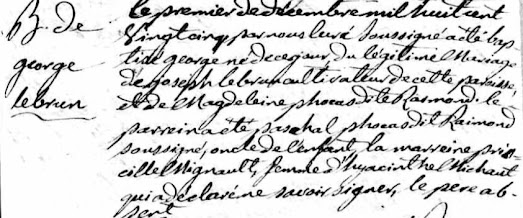 B. de
george
lebrun
le premier de decembre mil huit cent
Vingt cinq par nous curé soussigné a été bap
tisé george né de ce jour du légitime Mariage
de joseph lebrun cultivateur de cette paroisse
et de Magdeleine phocas dit le Raimond. le
parrein a été paschal phocas dit Raimond
soussigné, oncle de l'enfant, la marreine pris
cille Mignault, femme d'hyacinthe Michaut
qui a déclaré ne savoir signer, le pere ab-
sent